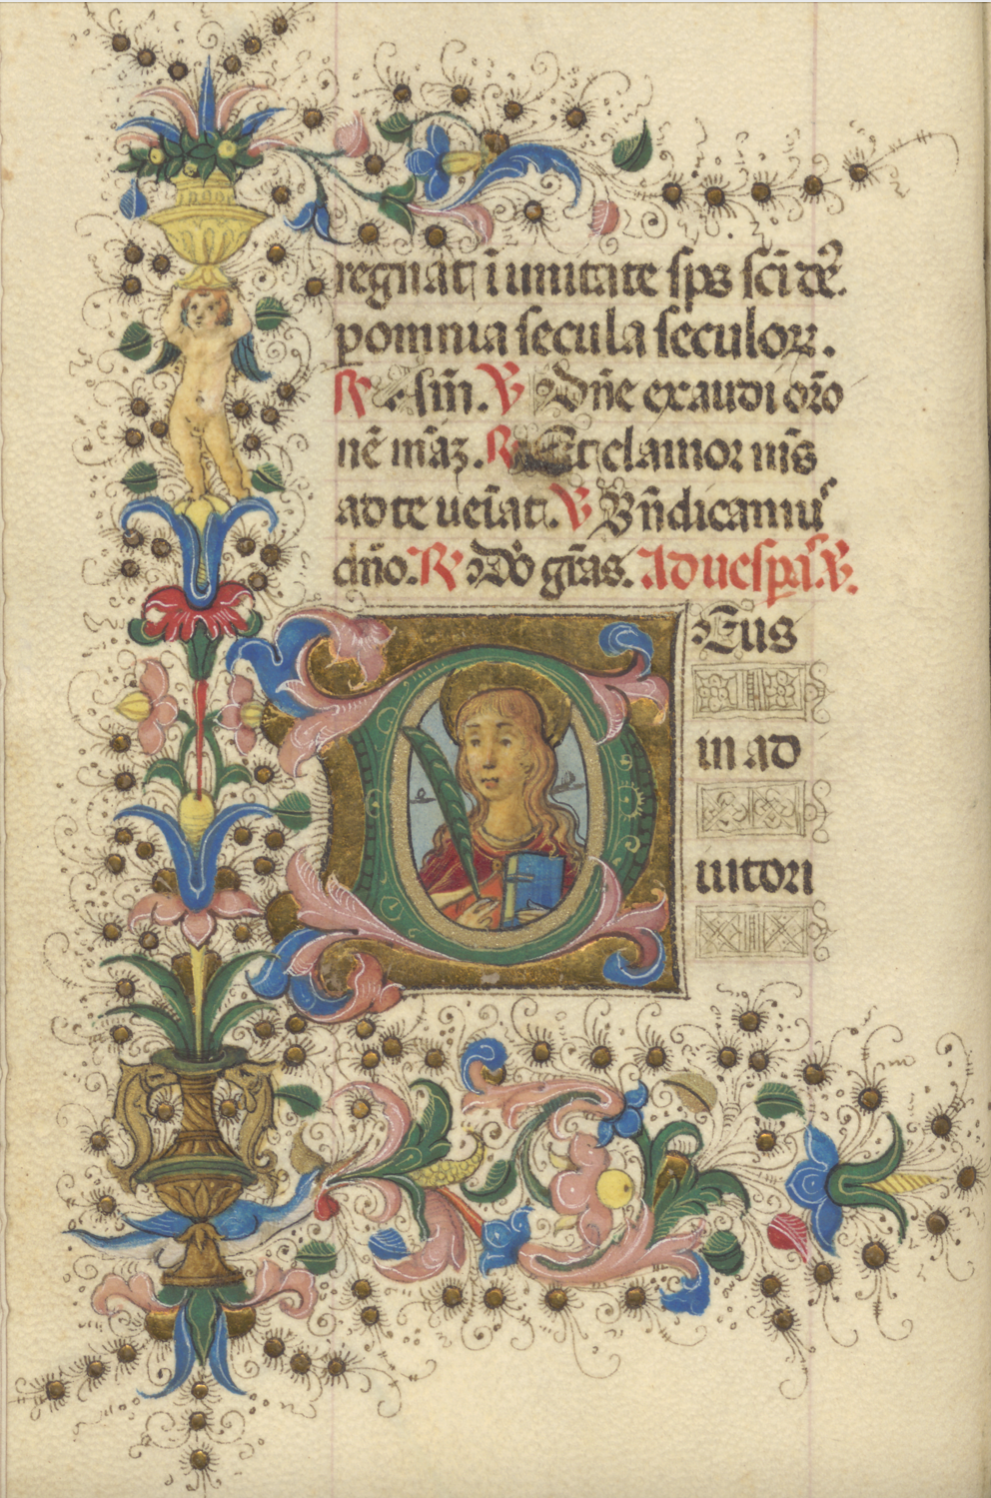 regnat ĩ unitate sps̃ sc̃i dẽ.
p omnia secula seculoꝝ.
℟ Am̃. ℣ Dñe exaudi or̃o
nẽ m̃aʒ. ℟ Et clamor m̃s
ad te ueĩat. ℣ Bñdicamuˢ
dño. ℟ Dõ gr̃as. Ad uesp̃as. ℣.
DEus
in ad
iutori